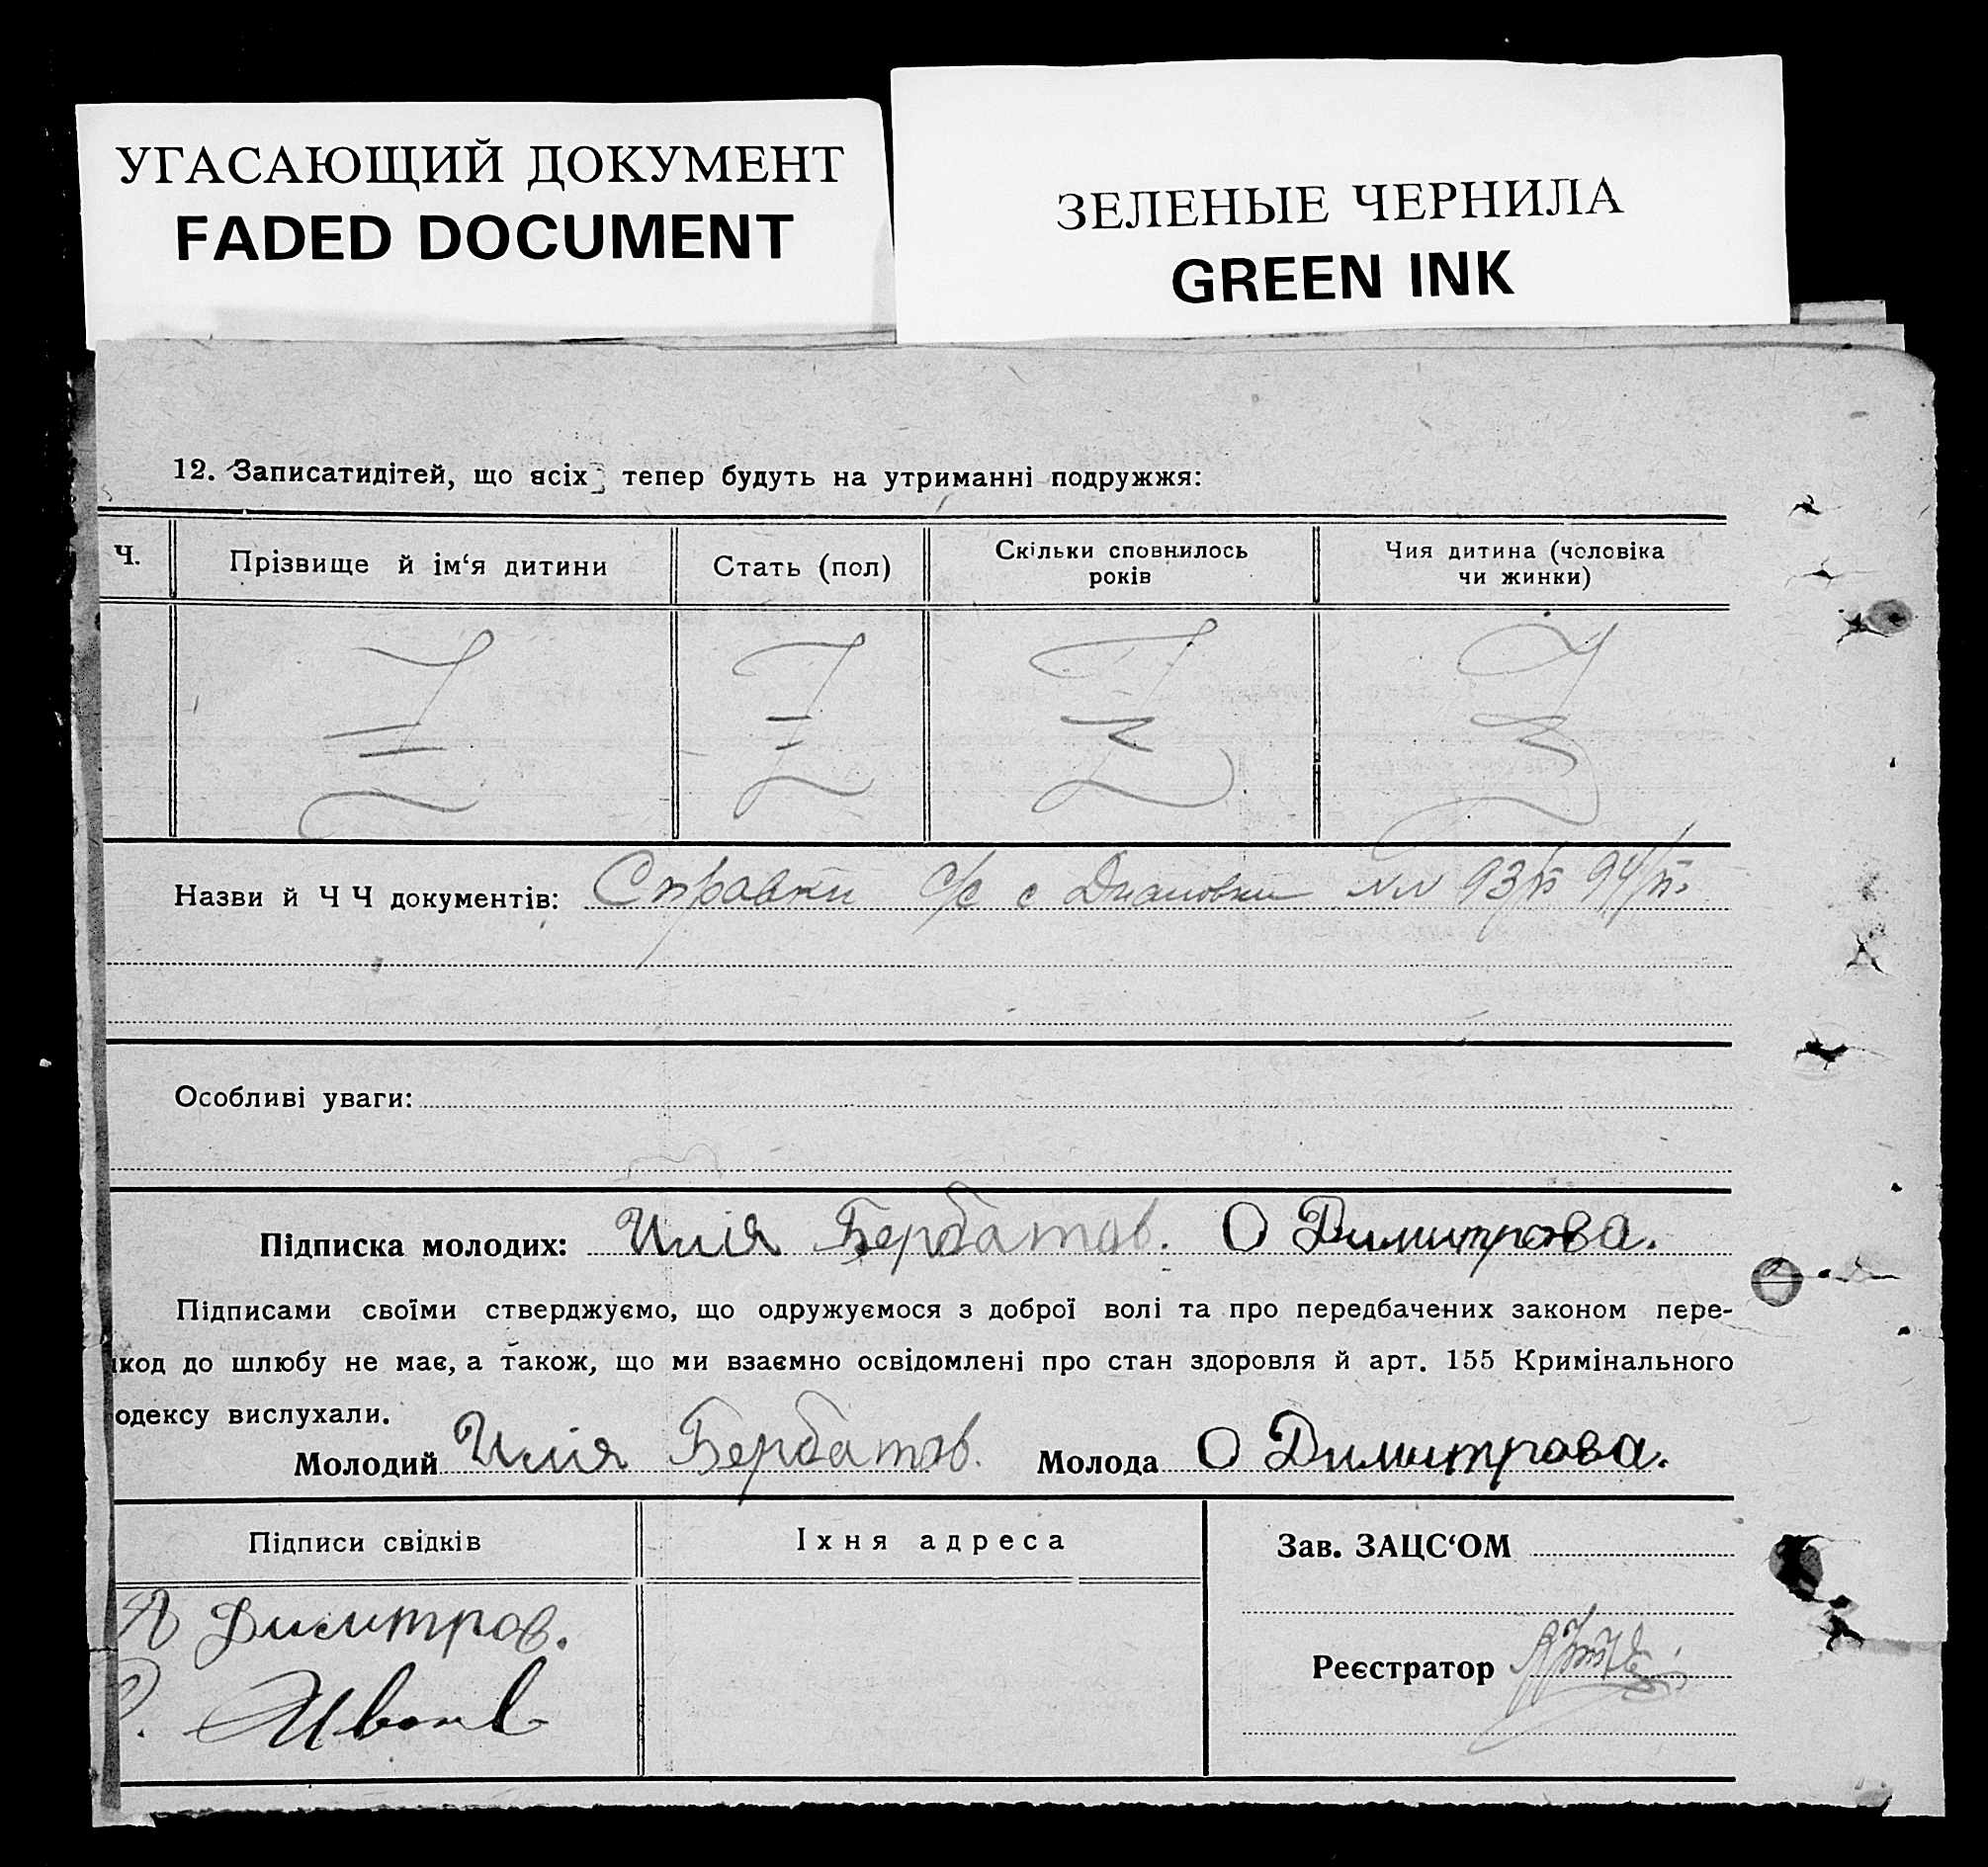 УГАСАЮЩИЙ ДОКУМЕНТ
FADED DOCUMENT
ЗЕЛЕНЫЕ ЧЕРНИЛА
GREEN INK
12. Записатидітей, що всіх тепер будуть на утриманні подружжя:
Ч. Прізвище й ім‘я дитини Стать (пол) Скільки сповнилось років Чия дитина (чоловіка чи жинки)
Назви й Ч Ч документів: Справки с/с с NN 93/ 94/
Особливі уваги:
Підписка молодих: Илія Бербатов. О Димитрова.
Підписами своїми стверджуємо, що одружуємося з доброї волі та про передбачених законом пере-
шкод до шлюбу не має, а також, що ми взаємно освідомлені про стан здоровля й арт. 155 Кримінального
одексу вислухали.
Молодий Илія Бербатов. Молода О Димитрова.
Підписи свідків Іхня адреса Зав. ЗАЦС‘ОМ
Я Димитров.
Реєстратор
Иванов